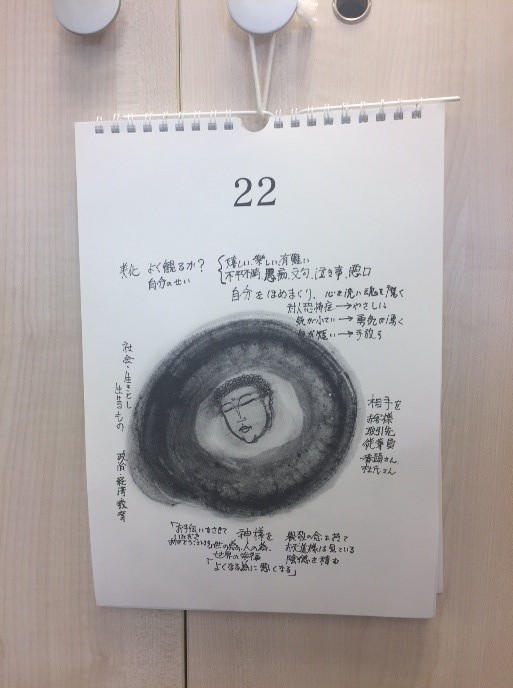 22
美化 よく観るか?
自分のせい
嬉しい、楽しい、有難い
不平不断、愚痴、文句、泣き事、悪口
自分をほめまくり、心を洗い魂を磨く
対人恐怖症→やさしい
気が小さい→勇気が湧く
気が短い→手放す
社会・生きとし
生けるもの
政治・経済・教育
相手を
お客様
取引先
従業員
杜氏さん
「お手伝いをさせて
いただき
ありがとうございます
神様を
世の為、人の為、
世界の幸福
「よくなる為に悪くなる」
感謝の念を持て
お天道様は見ている
陰徳を積む